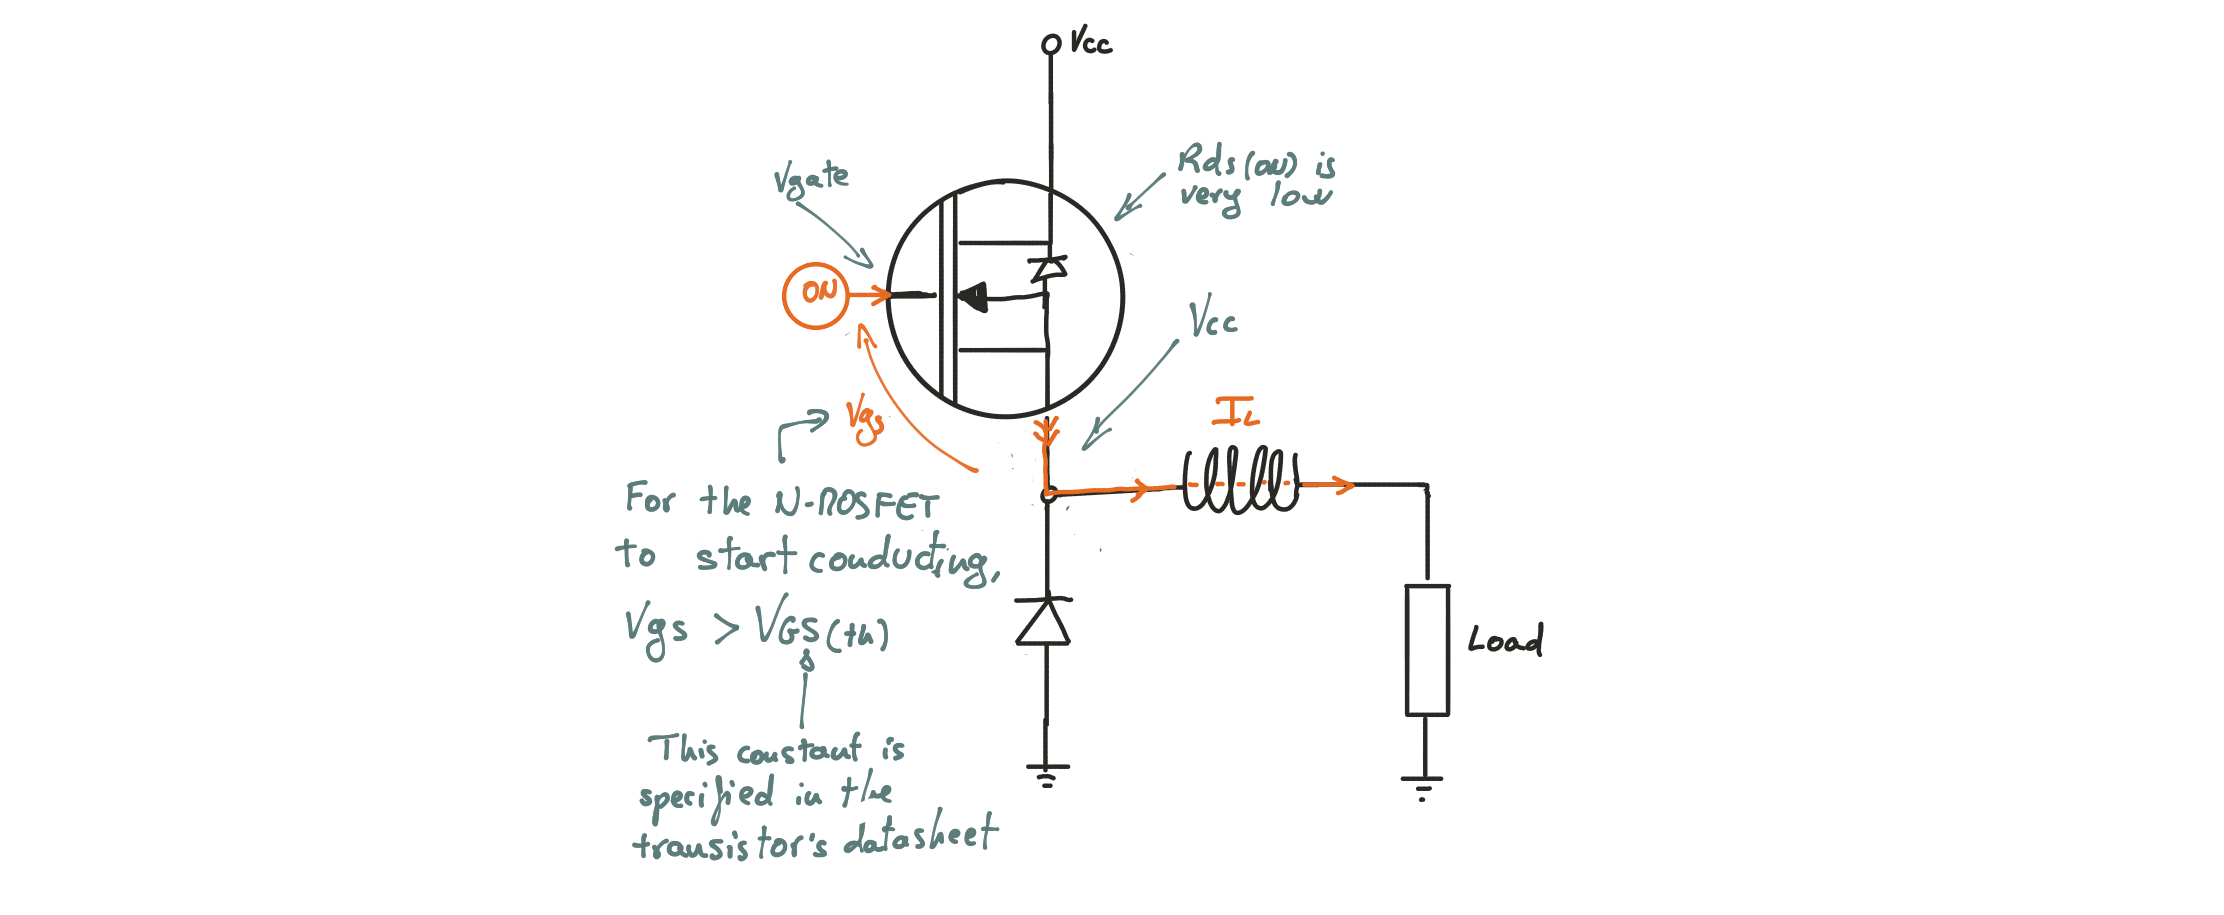 Vcc
Vgate
Rds(on) is
very low
ON
Vcc
Vgs
IL
For the N-MOSFET
to start conducting,
Vgs > VGS(th)
Load
This constant is
specified in the
transistor's datasheet